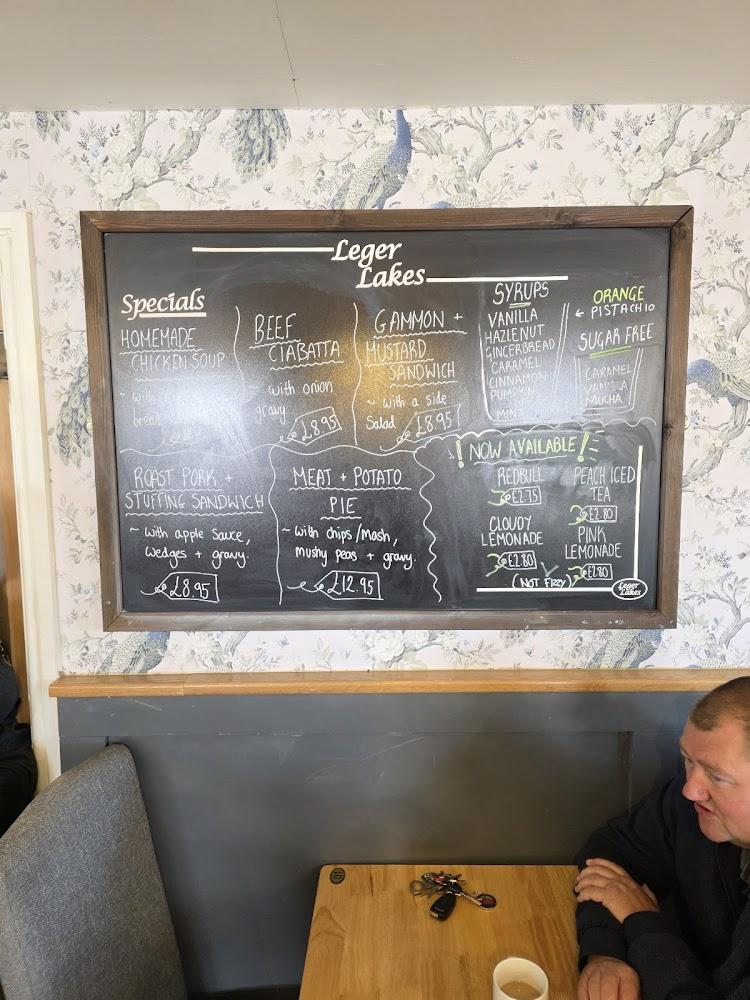 Leger
Lakes
Specials
HOMEMADE
CHICKEN SOUP
~ with
bread
BEEF
CIABATTA
~ with onion
gravy
£8.95
GAMMON +
MUSTARD
SANDWICH
~ with a side
Salad
£8.95
SYRUPS
VANILLA
HAZLENUT
GINGERBREAD
CARAMEL
CINNAMON
PUMPKIN
MINT
ORANGE
← PISTACHIO
SUGAR FREE
CARAMEL
VANILLA
MUCHA
ROAST PORK +
STUFFING SANDWICH
~ with apple sauce,
wedges + gravy.
£8.95
MEAT + POTATO
PIE
~ with chips/mash,
mushy peas + gravy.
£12.95
! NOW AVAILABLE!
REDBULL
£2.75
PEACH ICED
TEA
£2.80
CLOUDY
LEMONADE
£2.80
(NOT FIZZY)
PINK
LEMONADE
£2.80
Leger
Lakes